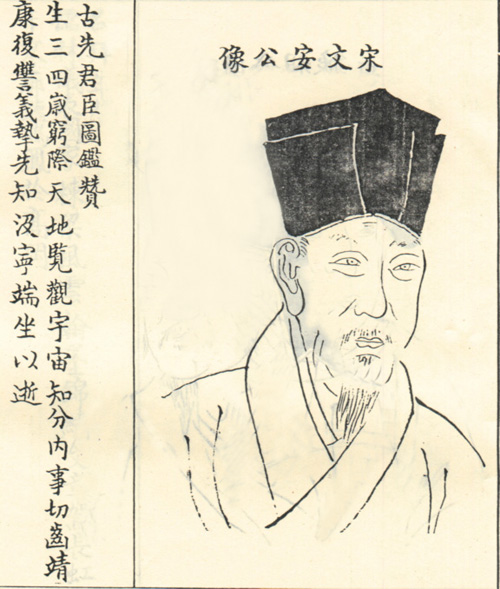 宋文安公像
古先君臣圖鑑賛
生三四歳窮際天地覧觀宇宙知分内事切齒靖
康復讐義摯先知没寧端坐以逝